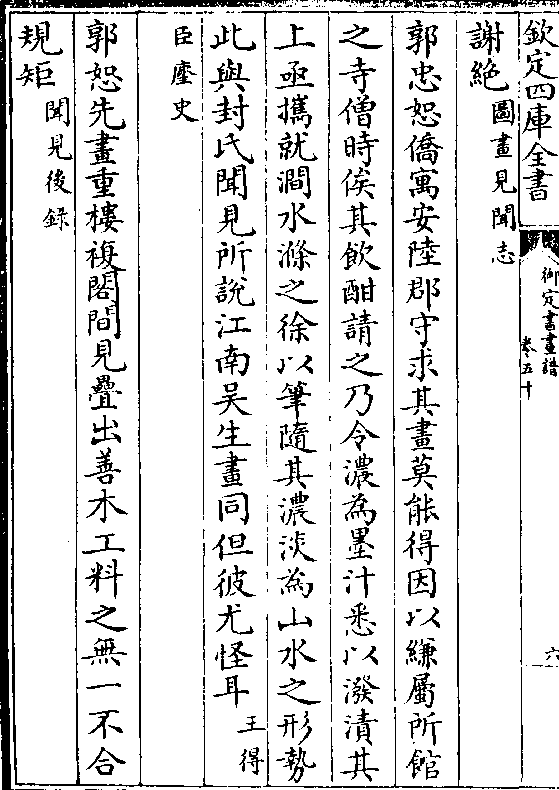 欽定四庫全書
御定書畫譜
卷五十
六
謝絶圖畫見聞志
郭忠恕僑寓安陸郡守求其畫莫能得因以縑屬所館
之寺僧時俟其飲酣請之乃令濃為墨汁悉以潑漬其
上亟攜就澗水滌之徐以筆隨其濃淡為山水之形勢
此與封氏聞見所說江南吴生畫同但彼尤怪耳王得
臣麈史
郭恕先畫重樓複閣間見疊出善木工料之無一不合
規矩聞見後錄